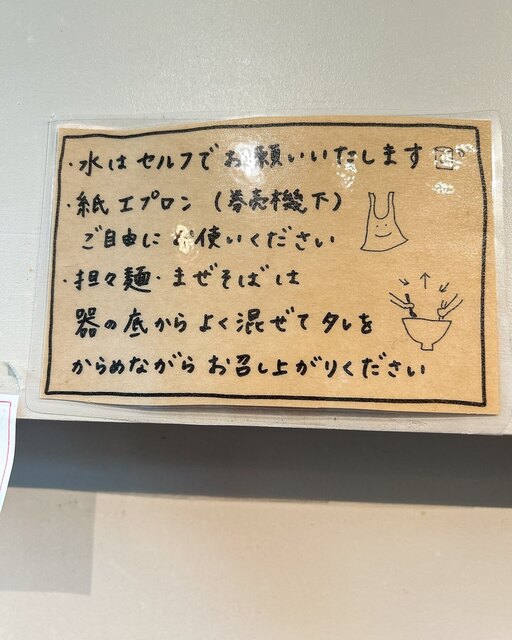 ・水はセルフでお願いいたします
・紙エプロン（券売機下）
ご自由にお使いください
・担々麺・まぜそばは
器の底からよく混ぜてタレを
からめながらお召し上がりください